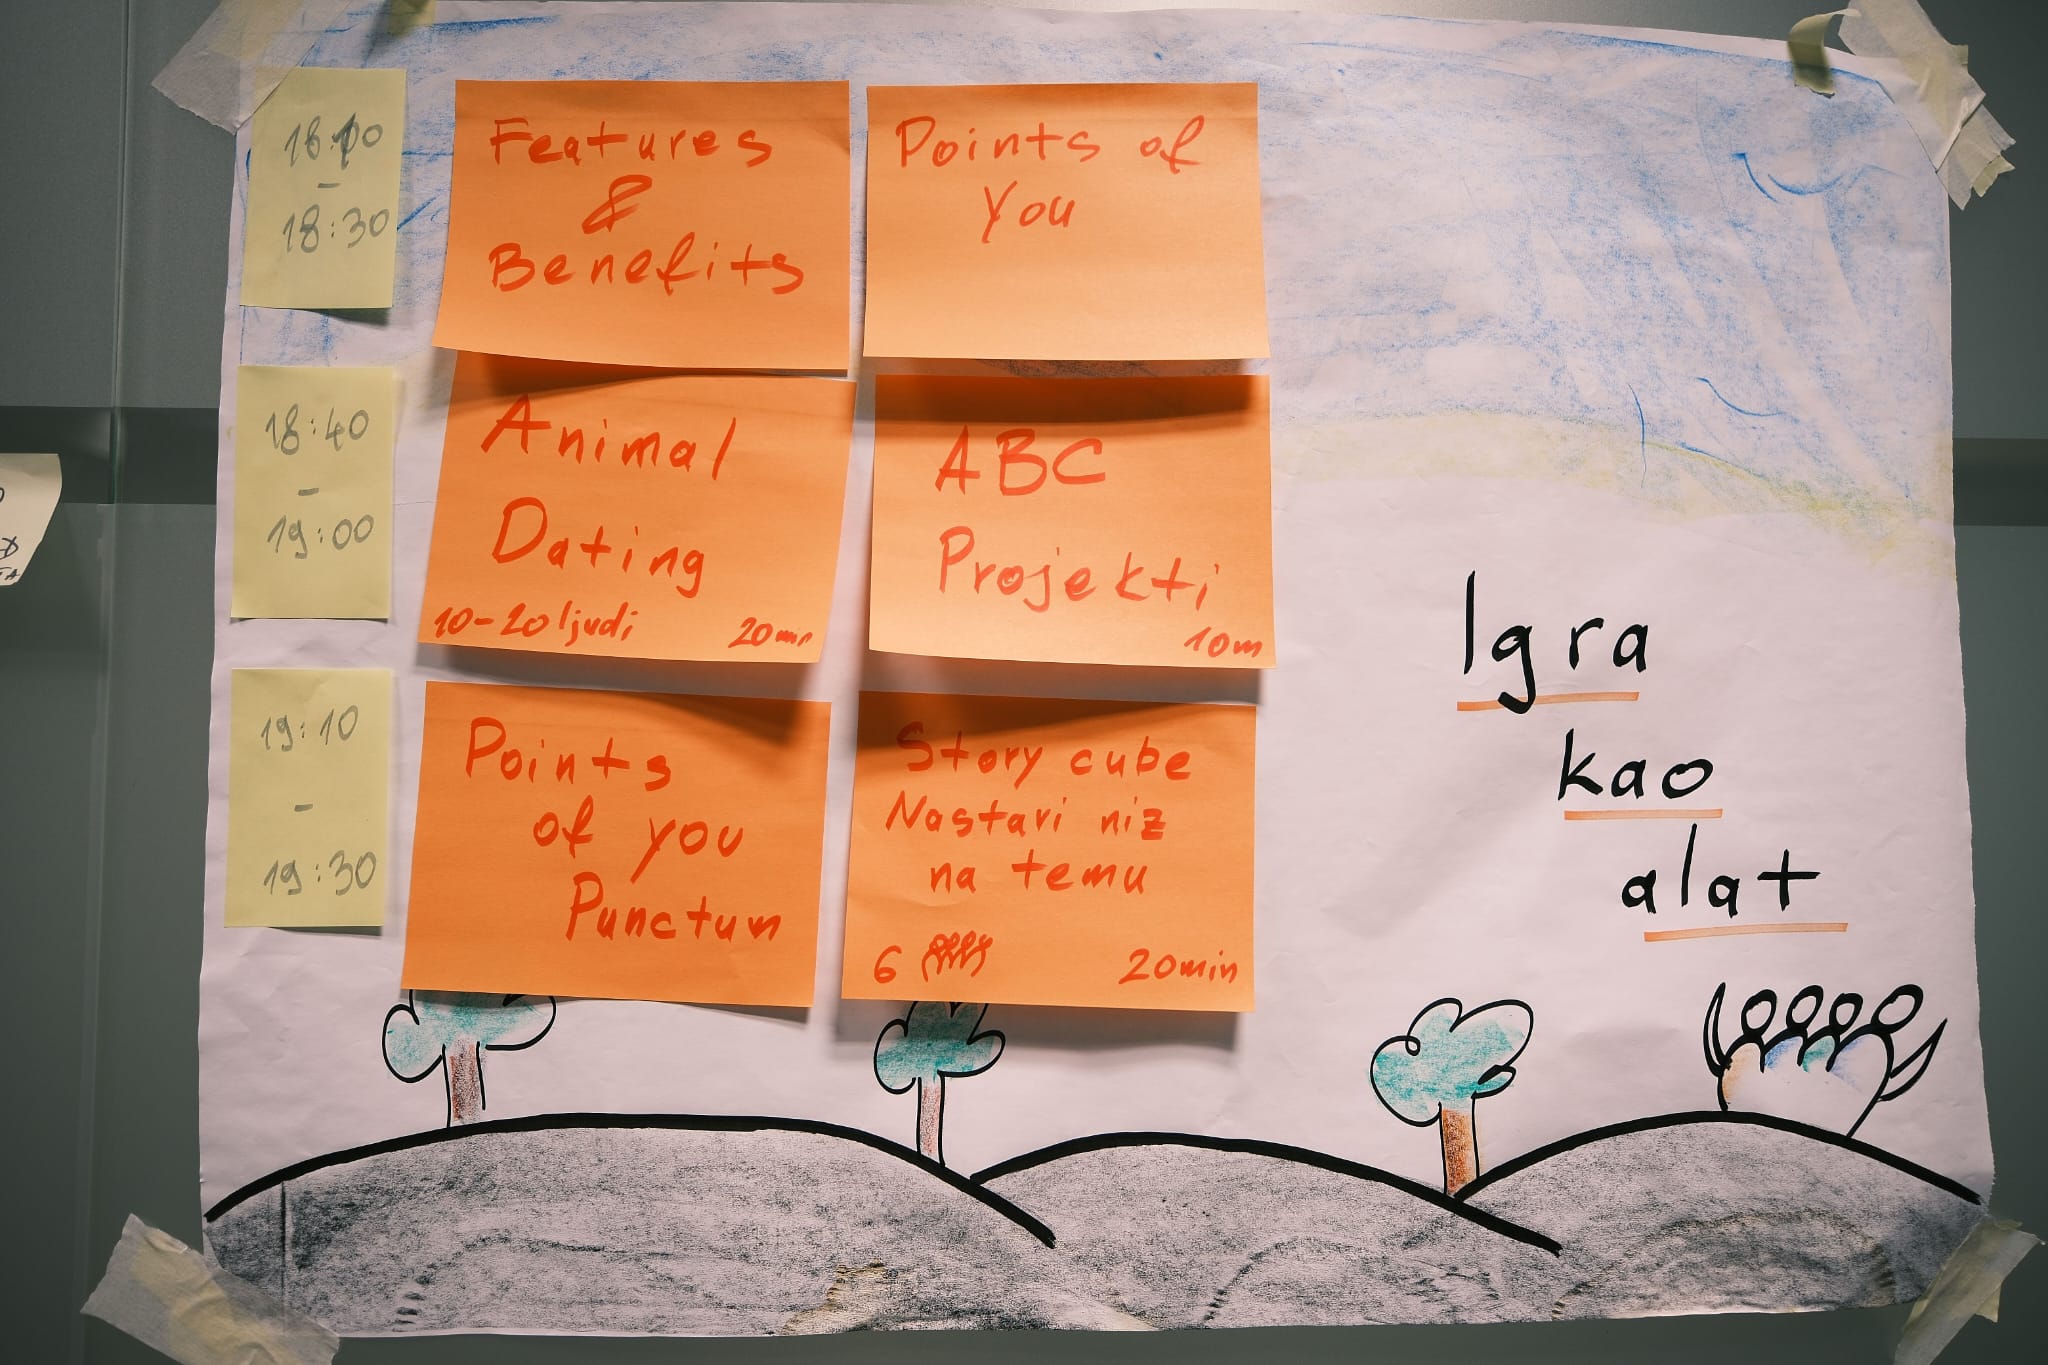 18:10
-
18:30
Features
&
Benefits
Points of
You
18:40
-
19:00
Animal
Dating
10-20 ljudi 20min
ABC
Projekti
10m
19:10
-
19:30
Points
of you
Punctum
Story cube
Nastavi niz
na temu
6 20min
Igra
kao
alat